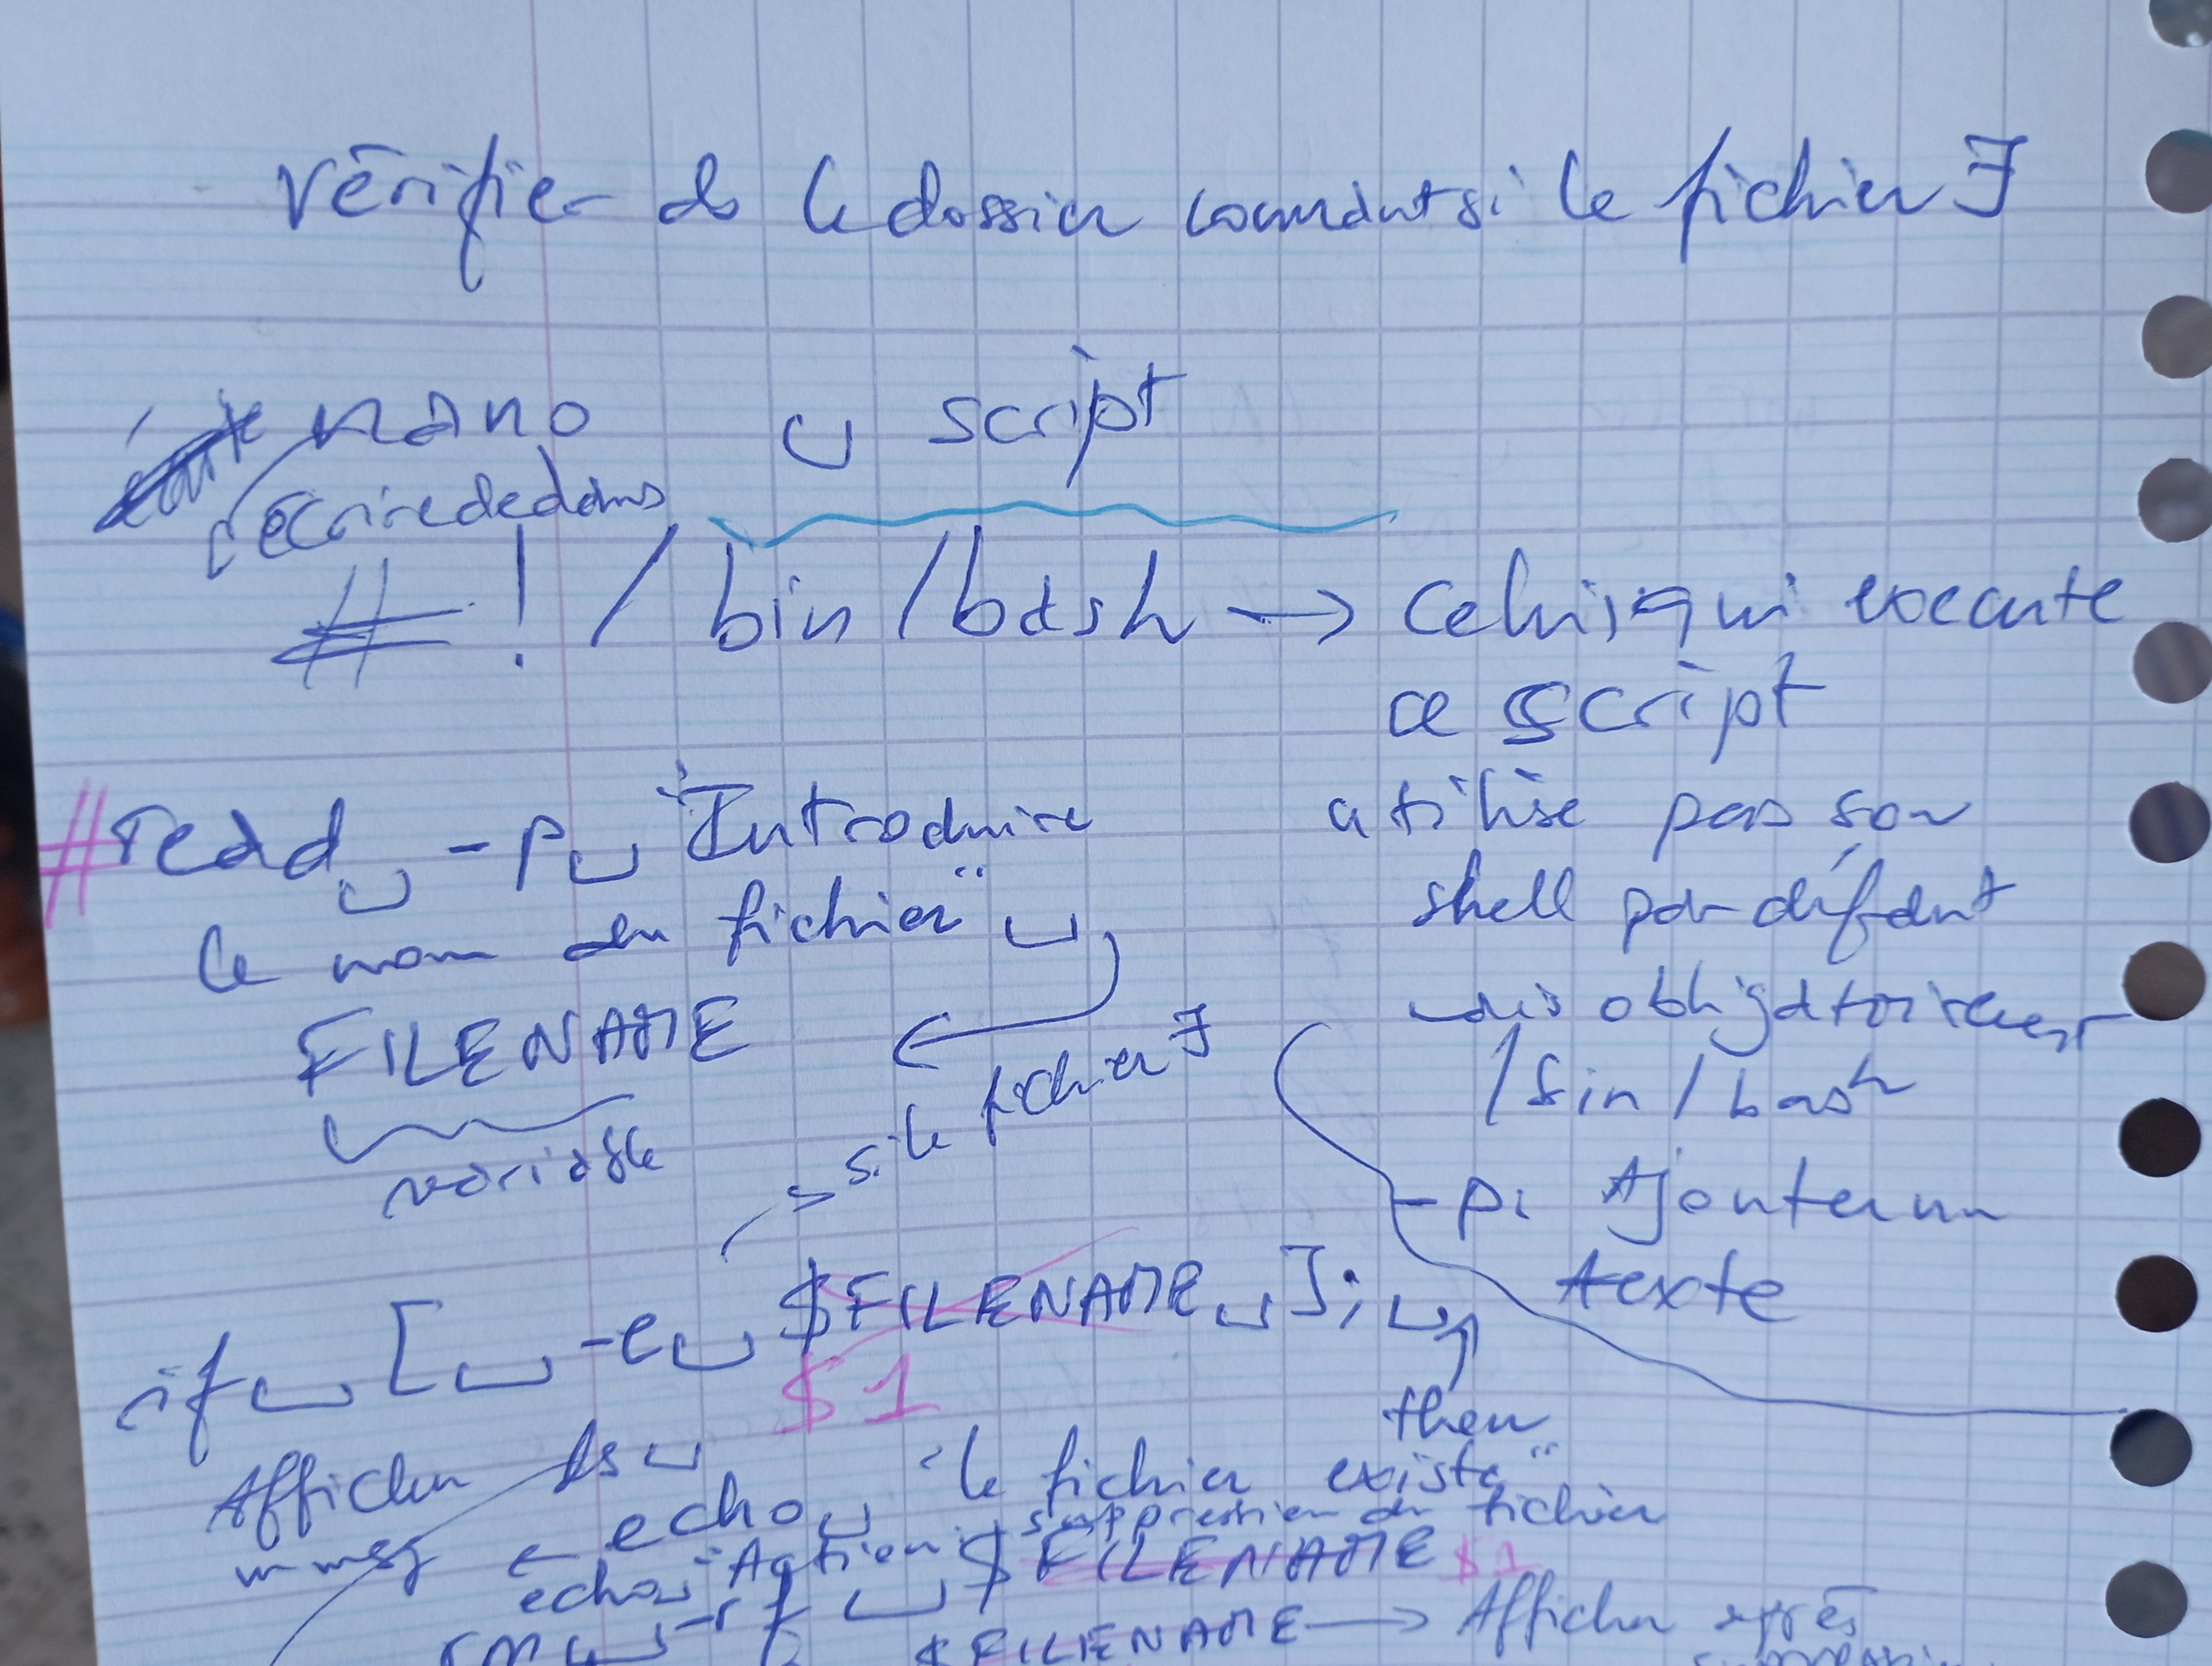 Vérifier ds le dossier courant si le fichier ∃
nano ␣ script
écrire dedans
#!/bin/bash → Celui qui execute
ce script
utilise pas son
shell par défaut
mais obligatoirement
/bin/bash
-p: Ajouter un
texte
#read␣-p␣"Introduire
le nom du fichier"␣
FILENAME
variable
→ si le fichier ∃
if␣[␣-e␣$FILENAME␣];␣
$1
then
ls␣
Afficher
un msg ← echo␣"le fichier existe"
echo␣"Action: suppression du fichier
$FILENAME $1
rm␣-rf␣
$FILENAME → Afficher après